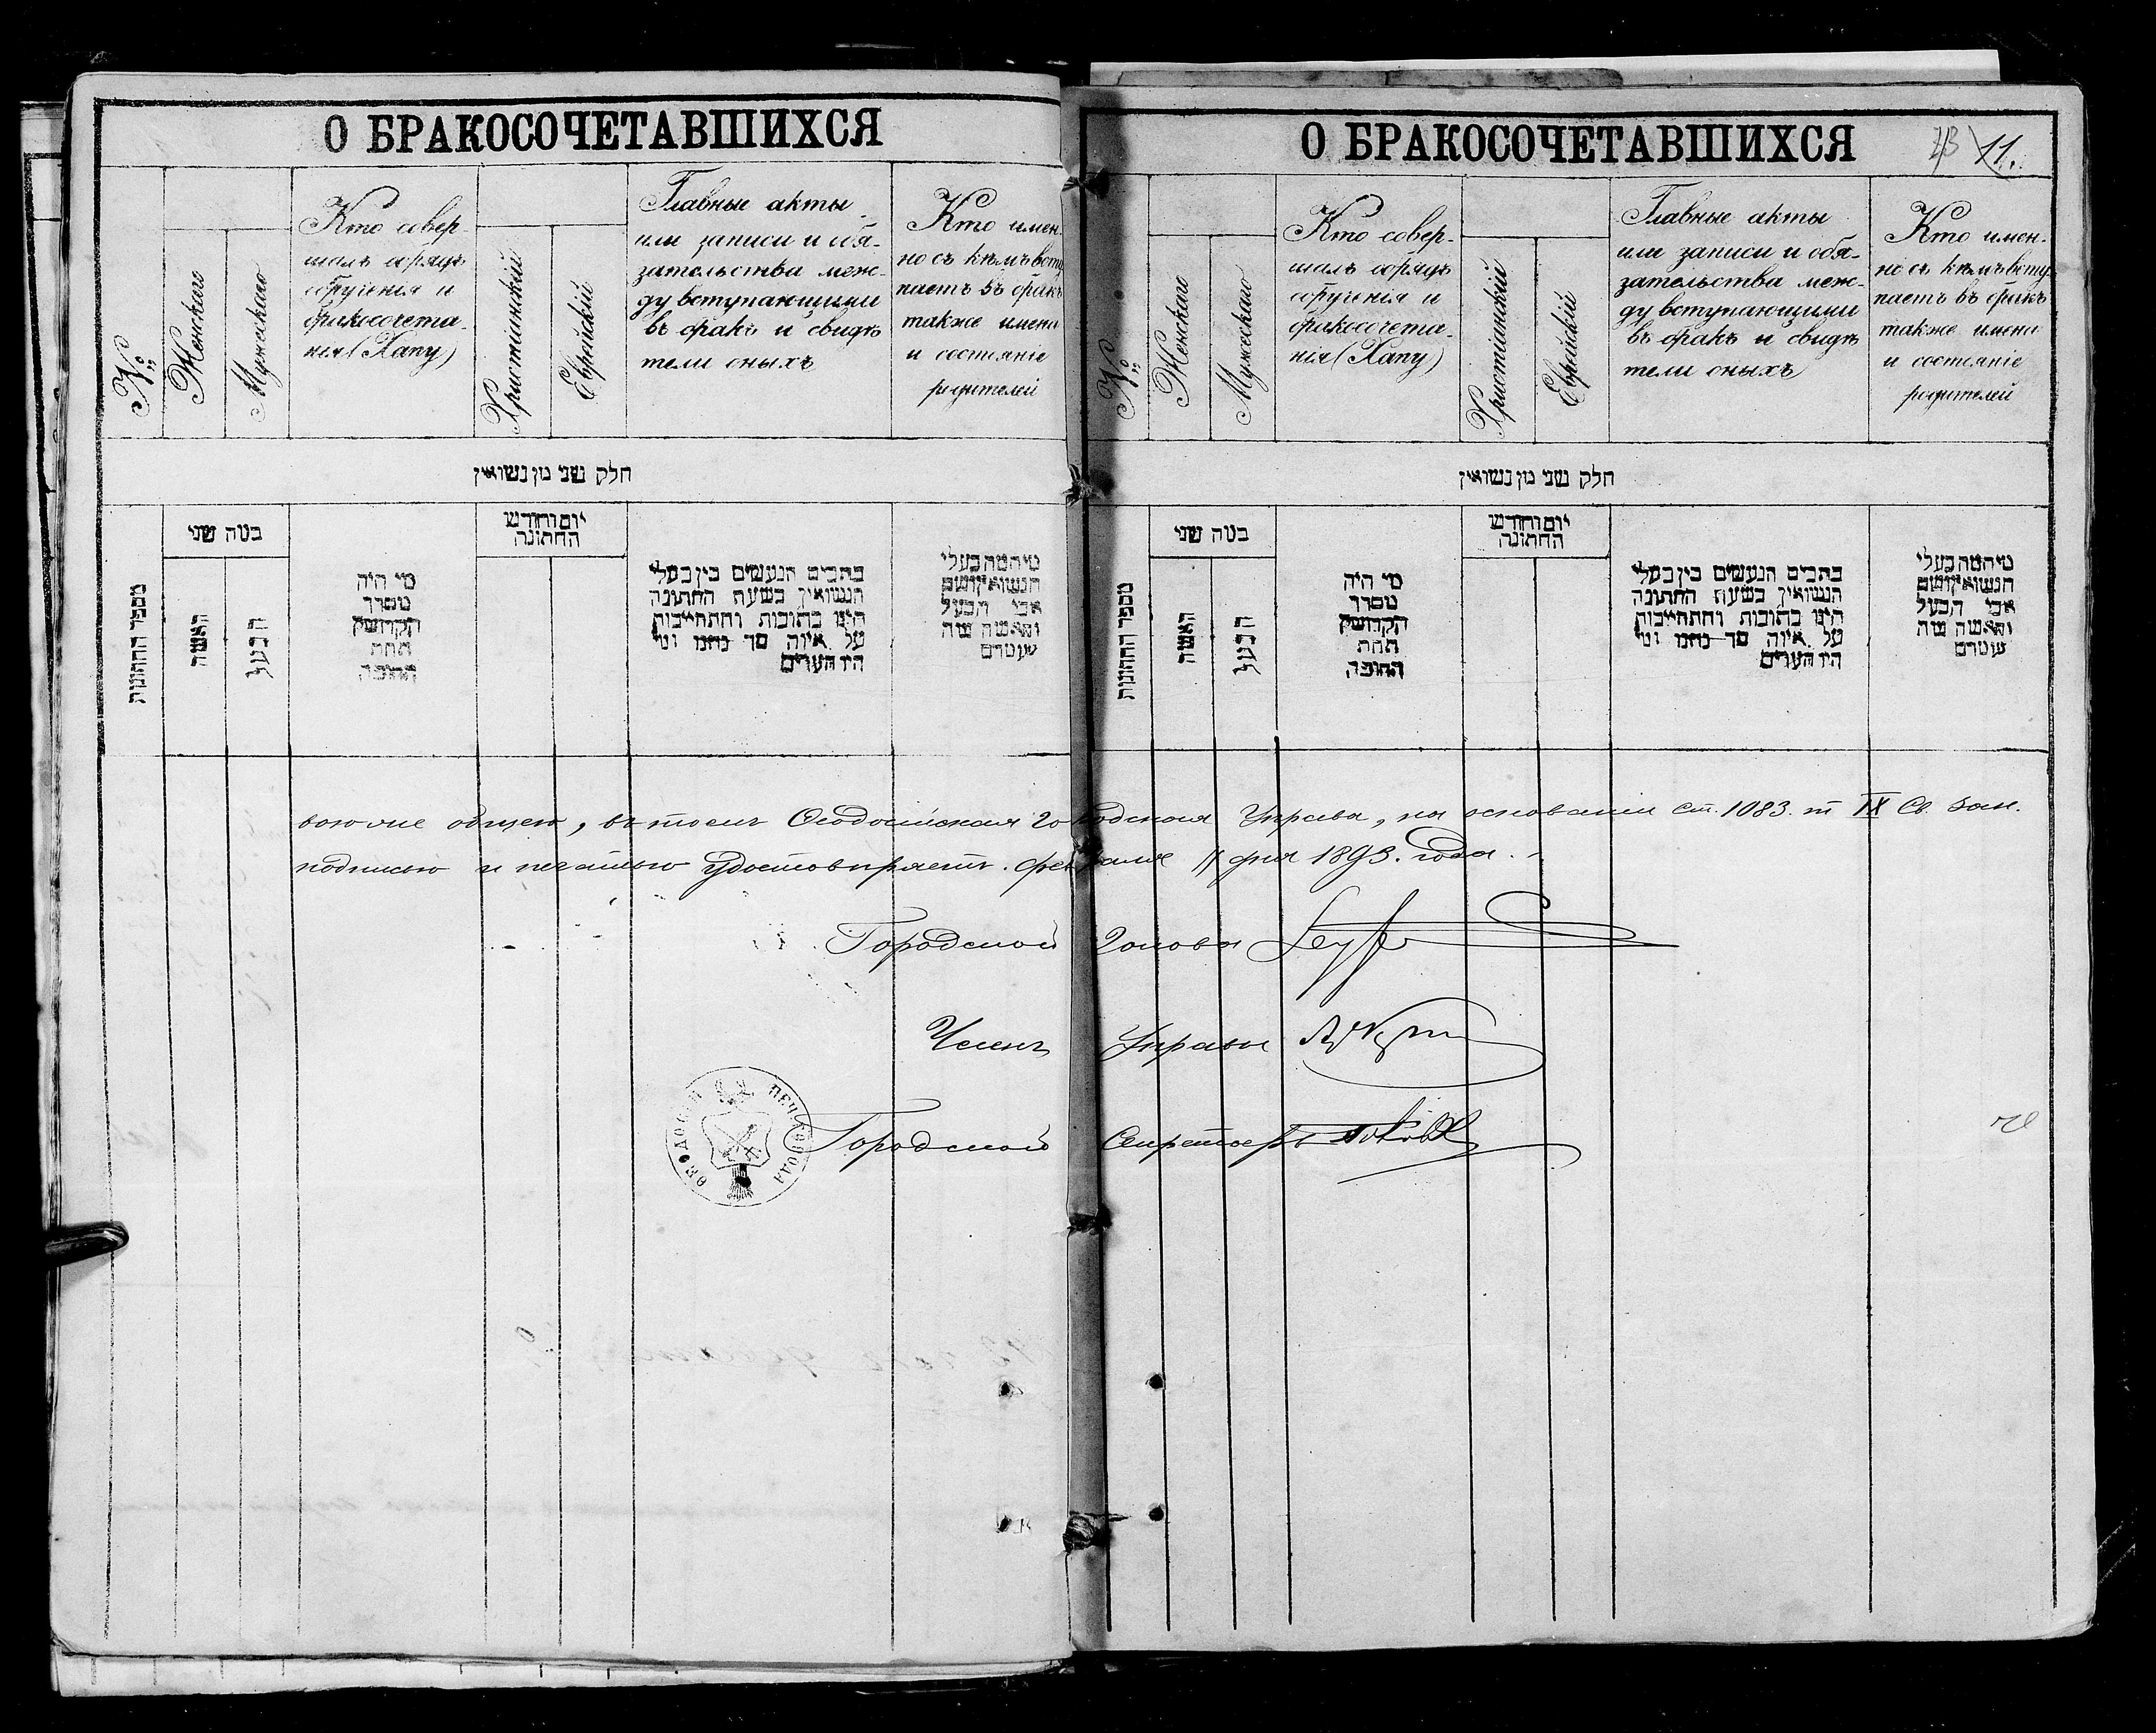 О БРАКОСОЧЕТАВШИХСЯ
№
Женскаго
Мужескаго
Кто совер-
шалъ обрядъ
обрученія и
бракосочета-
нія (Хапу)
Христіанскій
Еврейскій
Главные акты
или записи и обя-
зательства меж-
ду вступающими
въ бракъ и свидѣ
тели оныхъ
Кто имен-
но съ кѣмъ всту
паетъ въ бракъ
также имена
и состояніе
родителей
חלק שני מן נשואין
מספר החתונות
במה שני
האשה
הבעל
מי היה
מסדר
הקדושין
תחת
החופה
יום וחודש
החתונה
כתבים הנעשים בין בעלי
הנשואין בשעת החתונה
היינו כתובות והתחייבות
על איזה סך נתנו ומי
היו העדים
מי המה בעלי
הנשואין ושם
אבי הבעל
והאשה
О БРАКОСОЧЕТАВШИХСЯ
73 11.
№
Женскаго
Мужескаго
Кто совер-
шалъ обрядъ
обрученія и
бракосочета-
нія (Хапу)
Христіанскій
Еврейскій
Главные акты
или записи и обя-
зательства меж-
ду вступающими
въ бракъ и свидѣ
тели оныхъ
Кто имен-
но съ кѣмъ всту
паетъ въ бракъ
также имена
и состояніе
родителей
חלק שני מן נשואין
מספר החתונות
במה שני
האשה
הבעל
מי היה
מסדר
הקדושין
תחת
החופה
יום וחודש
החתונה
כתבים הנעשים בין בעלי
הנשואין בשעת החתונה
היינו כתובות והתחייבות
על איזה סך נתנו ומי
היו העדים
מי המה בעלי
הנשואין ושם
אבי הבעל
והאשה
въ томъ Ѳеодосійская Городская Управа, на основаніи ст. 1083. т IX Св. зак.
подписью и печатью удостовѣряетъ. февраля 11 дня 1893. года.
Городской Голова
Членъ Управы
Городской Секретарь
ѲЕОДОСІИ ПЕЧ. ГОРОДА